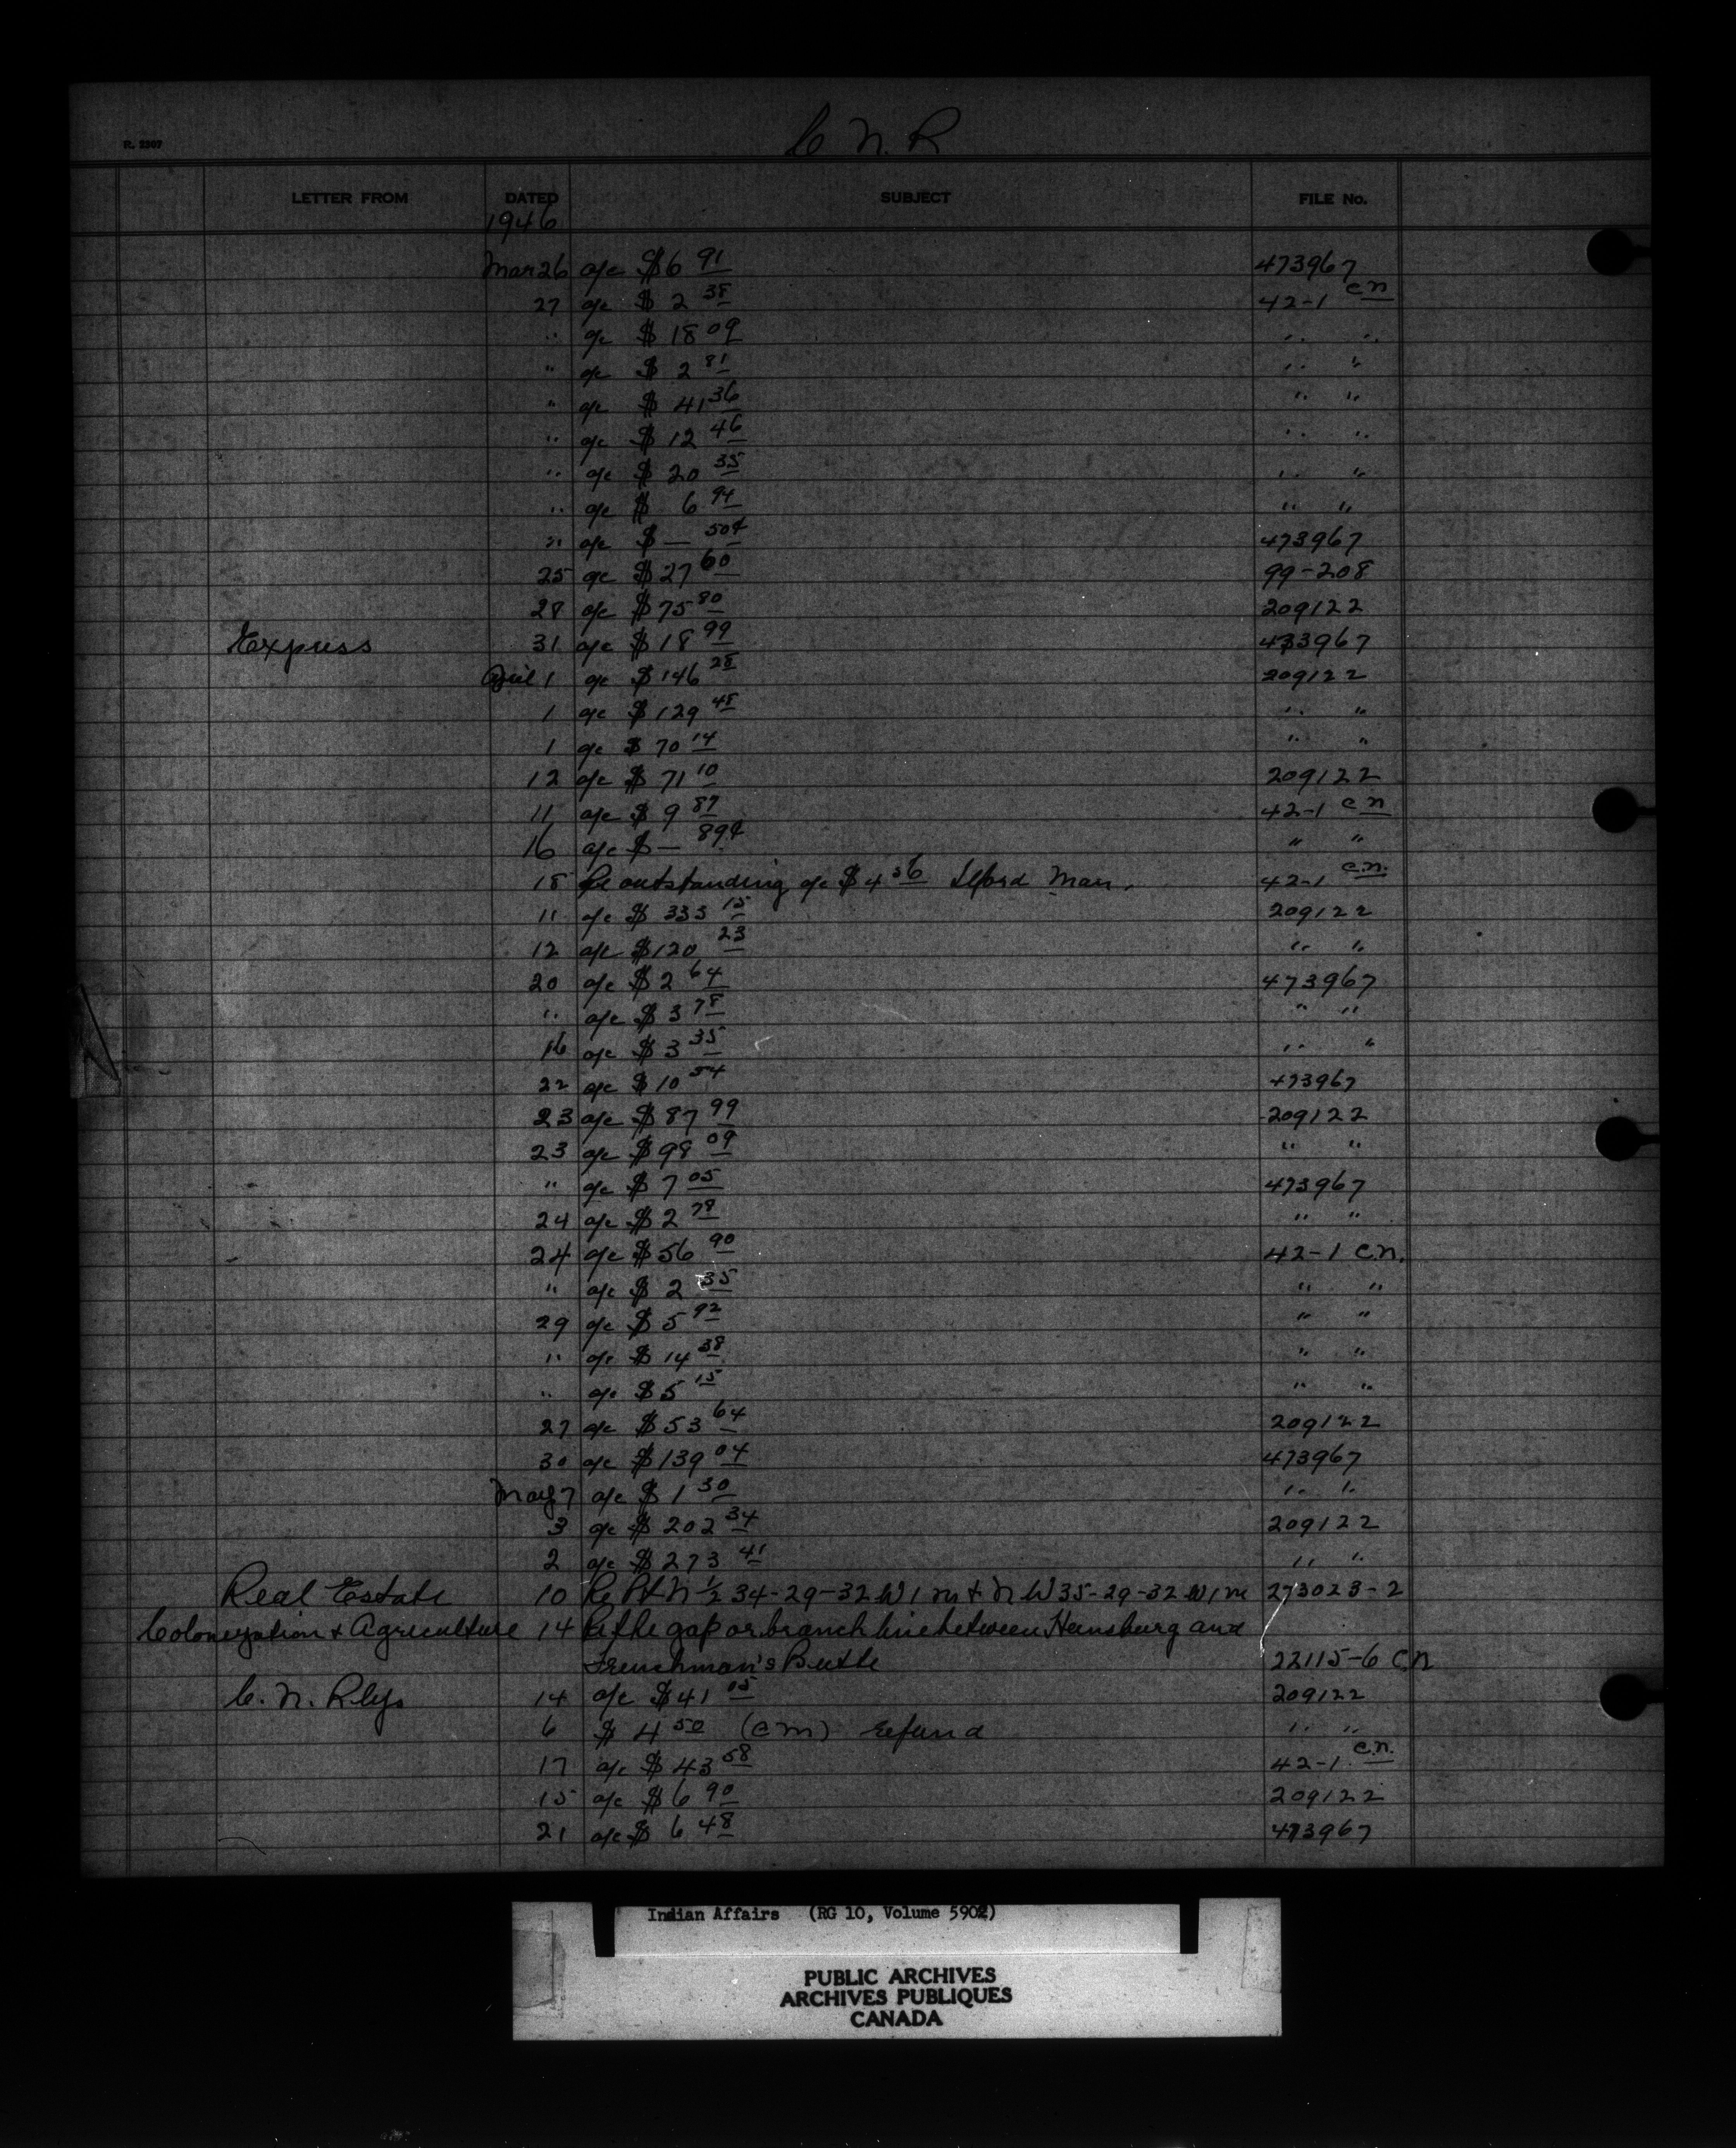 R. 2307
C N. R
LETTER FROM DATED SUBJECT FILE No.
1946
Mar 26 a/c $6 91 473967
27 a/c $ 2 38 42-1 C N
" a/c $ 18 09 " "
" a/c $ 2 81 " "
" a/c $ 41 36 " "
" a/c $ 12 46 " "
" a/c $ 20 35 " "
" a/c $ 6 94 " "
" a/c $ — 50¢ 473967
25 a/c $ 27 60 99-208
28 a/c $ 75 80 209122
Express 31 a/c $ 18 99 473967
April 1 a/c $ 146 28 209122
1 a/c $ 129 48 " "
1 a/c $ 70 14 " "
12 a/c $ 71 10 209122
11 a/c $ 9 87 42-1 C N
16 a/c $ — 89¢ " "
18 Re outstanding a/c $ 4 56 Ilford Man. 42-1 C.N.
11 a/c $ 333 15 209122
12 a/c $120 23 " "
20 a/c $ 2 64 473967
" a/c $ 3 78 " "
16 a/c $ 3 35 " "
22 a/c $ 10 54 473967
23 a/c $ 87 99 209122
23 a/c $ 98 09 " "
" a/c $ 7 05 473967
24 a/c $ 2 78 " "
24 a/c $ 56 90 42-1 C.N.
" a/c $ 2 35 " "
29 a/c $ 5 92 " "
" a/c $ 14 38 " "
" a/c $ 5 15 " "
27 a/c $ 53 64 209122
30 a/c $ 139 04 473967
May 7 a/c $ 1 30 " "
3 a/c $ 202 34 209122
2 a/c $ 273 41 " "
Real Estate 10 Re Pt N ½ 34-29-32 W 1 M + N W 35-29-32 W 1 M 273023-2
Colonization + Agriculture 14 Re the gap or branch line between Heinsburg and
Frenchman's Butte 22115-6 C.N
C. N. Rlys 14 a/c $ 41 05 209122
6 $ 4 50 (CM) refund " "
17 a/c $ 43 58 42-1 C.N.
15 a/c $ 6 90 209122
21 a/c $ 6 48 473967
Indian Affairs (RG 10, Volume 5902)
PUBLIC ARCHIVES
ARCHIVES PUBLIQUES
CANADA